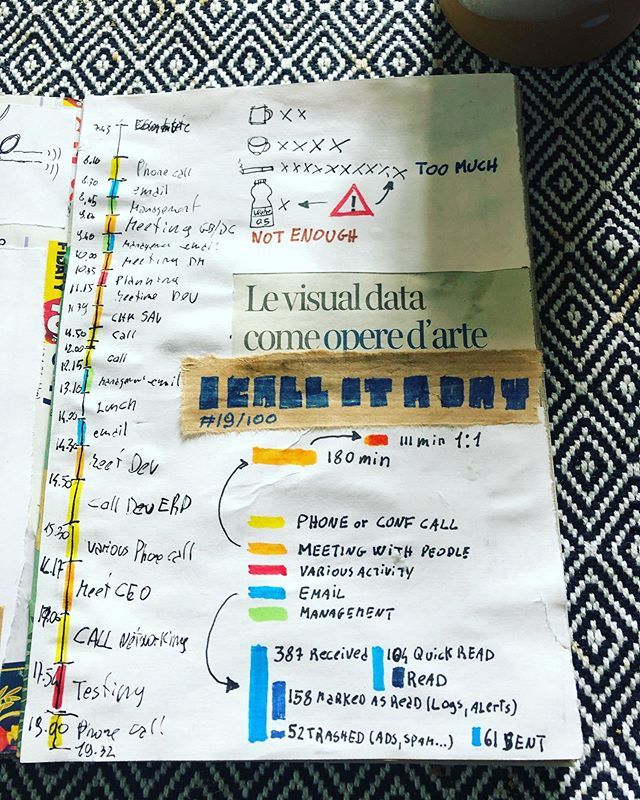 7.45
8.10
Phone call
8.30
email
8.45
Management
9.00
Meeting GD/DC
9.40
management email
10.00
Meeting DM
10.35
Planning
11.15
Meeting DEV
CHK SAL
11.50
Call
12.00
call
12.15
management email
13.10
Lunch
14.00
email
14.30
Meet Dev
14.50
Call Dev ERD
15.30
Various Phone call
16.17
Meet CEO
17.05
CALL Networking
17.54
Testing
19.00
Phone call
19.32
x x
x x x x
x x x x x x x x x x x TOO MUCH
x
0.5
!
NOT ENOUGH
Le visual data
come opere d'arte
I CALL IT A DAY
#19/100
111 min 1:1
180 min
PHONE or CONF CALL
MEETING WITH PEOPLE
VARIOUS ACTIVITY
EMAIL
MANAGEMENT
387 Received
104 QUICK READ
READ
158 MARKED AS READ (LOGS, ALERTS)
52 TRASHED (ADS, SPAM...)
61 SENT
FIDATY